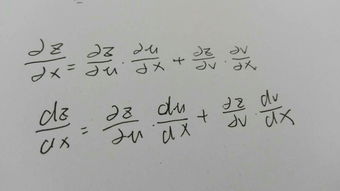 ∂z/∂x = ∂z/∂u · ∂u/∂x + ∂z/∂v · ∂v/∂x
dz/dx = ∂z/∂u · du/dx + ∂z/∂v · dv/dx